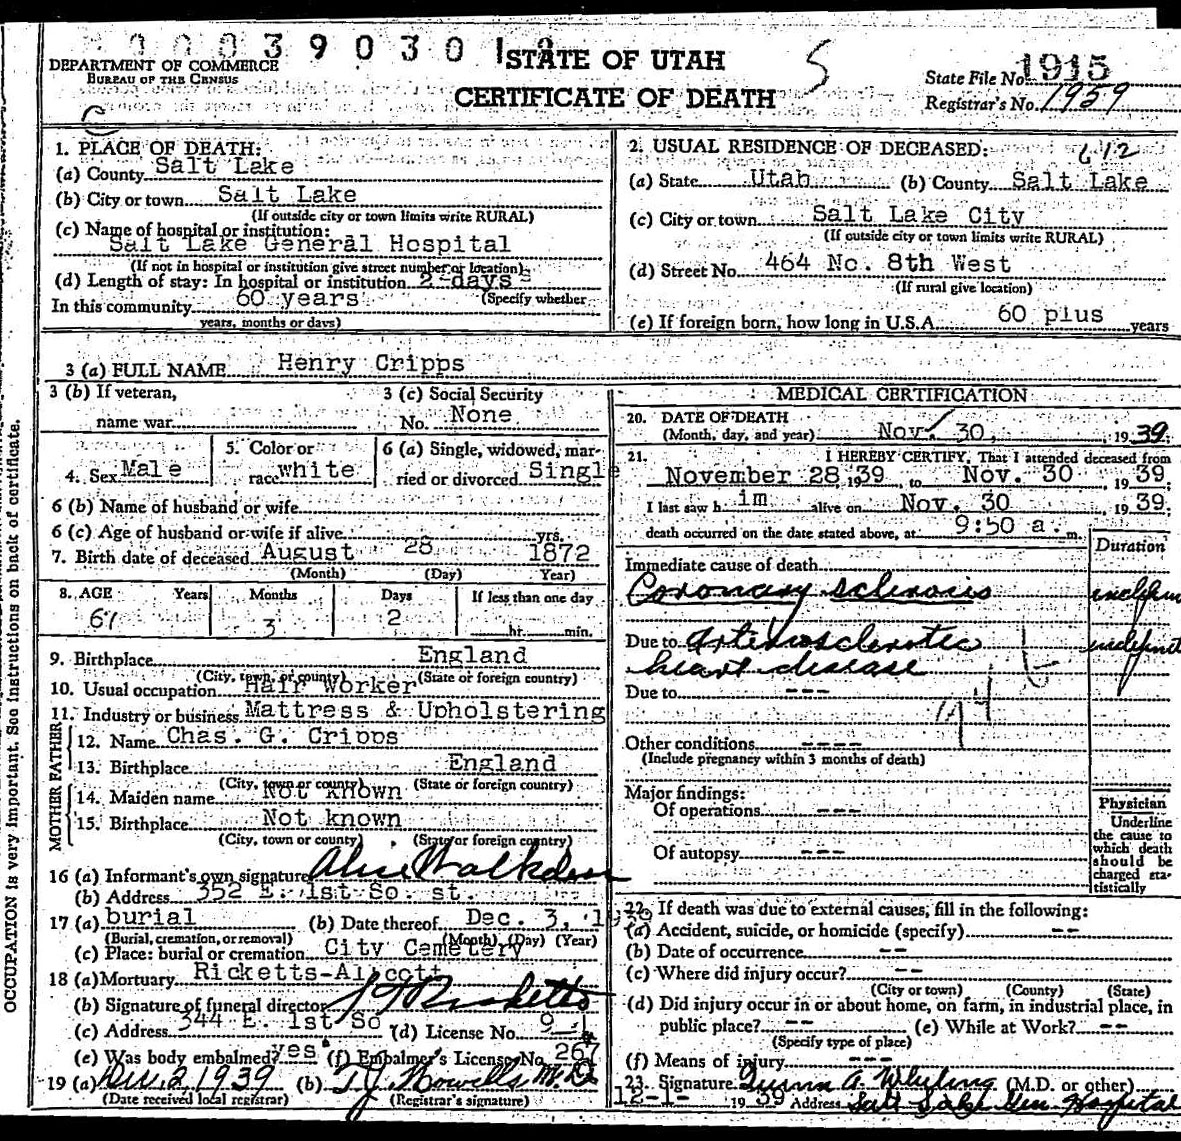 0 0 0 3 9 0 3 0 1
STATE OF UTAH
CERTIFICATE OF DEATH
DEPARTMENT OF COMMERCE
BUREAU OF THE CENSUS
C
S
State File No. 1915
Registrar's No. 1959
1. PLACE OF DEATH:
(a) County Salt Lake
(b) City or town Salt Lake
(If outside city or town limits write RURAL)
(c) Name of hospital or institution:
Salt Lake General Hospital
(If not in hospital or institution give street number or location)
(d) Length of stay: In hospital or institution 2-days
(Specify whether
In this community 60 years
years, months or days)
2. USUAL RESIDENCE OF DECEASED: 612
(a) State Utah (b) County Salt Lake
(c) City or town Salt Lake City
(If outside city or town limits write RURAL)
(d) Street No. 464 No. 8th West
(If rural give location)
(e) If foreign born, how long in U.S.A. 60 plus years
3 (a) FULL NAME Henry Cripps
3 (b) If veteran,
name war
3 (c) Social Security
No. None
4. Sex Male
5. Color or
race white
6 (a) Single, widowed, mar-
ried or divorced Single
6 (b) Name of husband or wife
6 (c) Age of husband or wife if alive yrs.
7. Birth date of deceased August 28 1872
(Month) (Day) Year)
8. AGE Years Months Days If less than one day
67 3 2 hr. min.
9. Birthplace England
(City, town, or county) (State or foreign country)
10. Usual occupation Hair Worker
11. Industry or business Mattress & Upholstering
FATHER
12. Name Chas. G. Cripps
13. Birthplace England
(City, town or county) (State or foreign country)
MOTHER
14. Maiden name Not known
15. Birthplace Not known
(City, town or county) (State or foreign country)
16 (a) Informant's own signature Alice Walkden
(b) Address 352 E. 1st So. st.
17 (a) burial (b) Date thereof Dec. 3, 1939
(Burial, cremation, or removal) (Month) (Day) (Year)
(c) Place: burial or cremation City Cemetery
18 (a) Mortuary Ricketts-Alpcott
(b) Signature of funeral director Ricketts
(c) Address 344 E. 1st So (d) License No. 9
(e) Was body embalmed? yes (f) Embalmer's License No. 267
19 (a) Dec. 2, 1939 (b) T.J. Howells M.D.
(Date received local registrar) (Registrar's signature)
MEDICAL CERTIFICATION
20. DATE OF DEATH
(Month, day, and year) Nov. 30, 1939
21. I HEREBY CERTIFY, That I attended deceased from
November 28, 1939, to Nov. 30, 1939;
I last saw h im alive on Nov. 30, 1939;
death occurred on the date stated above, at 9:50 a. m.
Duration
Immediate cause of death
Coronary sclerosis
Due to Arteriosclerotic
heart disease
Due to ---
94
Other conditions ----
(Include pregnancy within 3 months of death)
Major findings:
Of operations ---
Of autopsy ---
Physician
Underline
the cause to
which death
should be
charged sta-
tistically
22. If death was due to external causes, fill in the following:
(a) Accident, suicide, or homicide (specify) --
(b) Date of occurrence --
(c) Where did injury occur? --
(City or town) (County) (State)
(d) Did injury occur in or about home, on farm, in industrial place, in
public place? -- (e) While at Work? --
(Specify type of place)
(f) Means of injury ---
23. Signature A. (M.D. or other)
12-1- 1939 Address Salt Lake Gen Hospital
OCCUPATION is very important. See instructions on back of certificate.